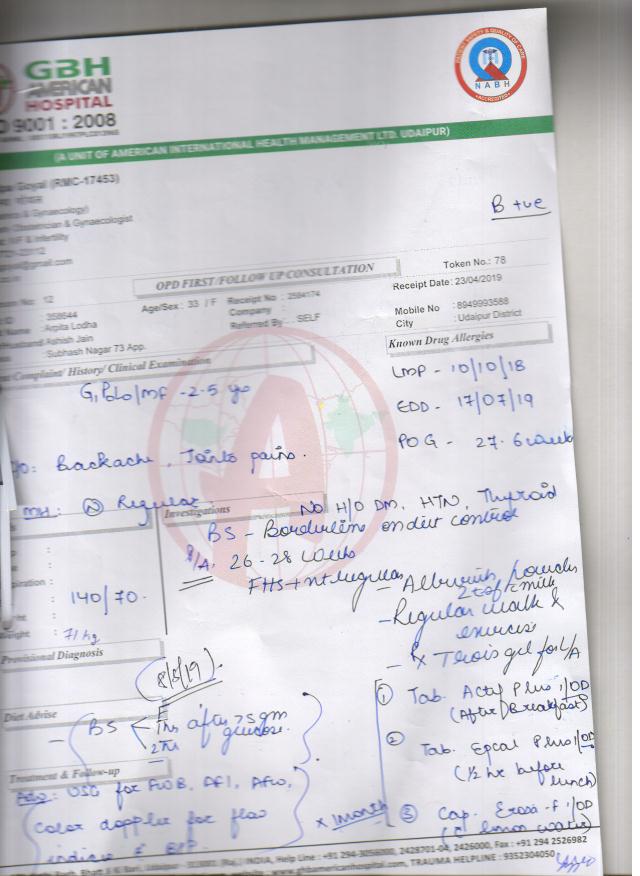 GBH
AMERICAN
HOSPITAL
9001 : 2008
PATIENT SAFETY & QUALITY OF CARE
NABH
ACCREDITED
(A UNIT OF AMERICAN INTERNATIONAL HEALTH MANAGEMENT LTD. UDAIPUR)
Goyal (RMC-17453)
& Gynaecology)
Obstetrician & Gynaecologist
IVF & Infertility
B +ve
OPD FIRST/FOLLOW UP CONSULTATION
Token No.: 78
Receipt Date: 23/04/2019
No: 12
358644
Age/Sex : 33 / F
Receipt No : 2584174
Company :
Referred By : SELF
Mobile No : 8949993588
City : Udaipur District
Name : Arpita Lodha
Ashish Jain
Subhash Nagar 73 App.
Complaint/ History/ Clinical Examination
Known Drug Allergies
LMP - 10/10/18
EDD - 17/07/19
POG - 27.6 weeks
Backache, Joints pains.
MH: (N) Regular.
Investigations
No H/O DM, HTN, Thyroid
BS - Borderline on diet control
P/A. 26-28 weeks
FHS +nt regular
140/70
Weight : 71 kg
- Regular walk &
exercise
gel for L/A
Provisional Diagnosis
(8/5/19)
Diet Advise
- BS < 1hr after 75gm
2hr glucose.
Treatment & Follow-up
Adv: USG for FWB, AFI, AFW,
color doppler for flow
indices & BPP.
x 1 month
① Tab. Actif Plus 1/OD
(After Breakfast)
② Tab. Epcal Plus 1/OD
(1/2 hr before
lunch)
③ Cap. 1/OD
lemon water)
Bhatt Ji Ki Bari, Udaipur - 313001 (Raj.) INDIA, Help Line : +91 294-3056000, 2428701-04, 2426000, Fax : +91 294 2526982
www.gbhamericanhospital.com, TRAUMA HELPLINE : 9352304050